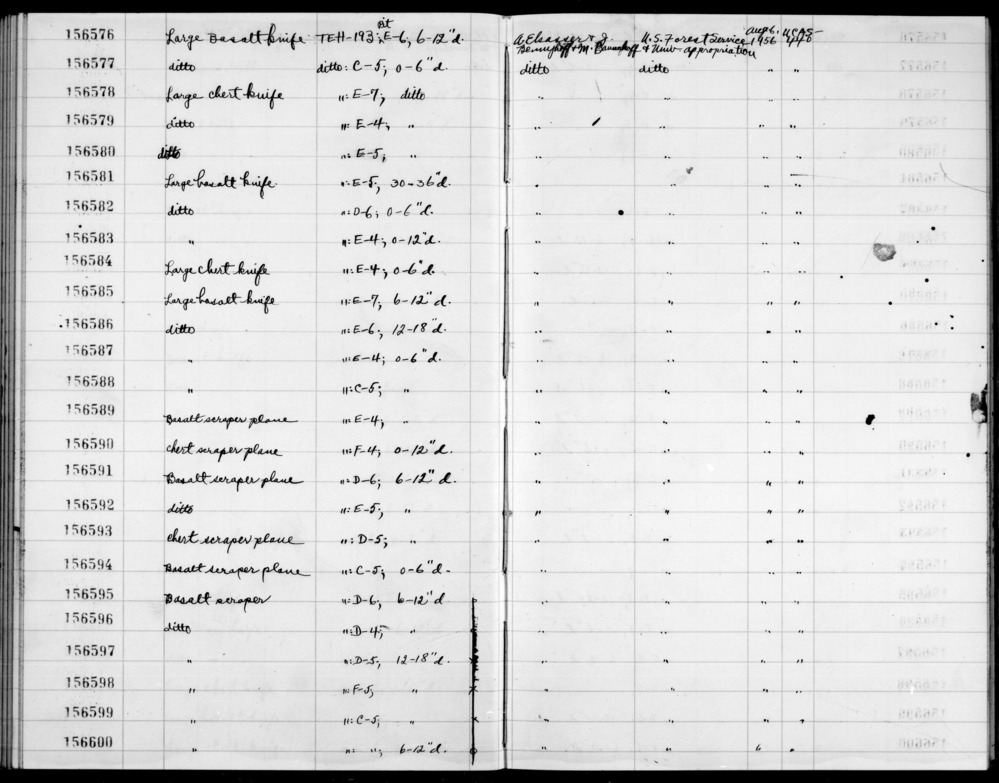 156576 Large Basalt knife TEH-193: Pit E-6, 6-12"d. A. Elsasser & J. Bennyhoff & M. Baumhoff U.S. Forest Service & Univ. appropriation Aug 6, 1956
156577 ditto ditto: C-5; 0-6"d. ditto ditto " "
156578 Large chert knife ": E-7; ditto " " " "
156579 ditto ": E-4; " " " " "
156580 ditto ": E-5; " " " " "
156581 Large basalt knife ": E-5; 30-36"d. " " " "
156582 ditto ": D-6; 0-6"d. " " " "
156583 " ": E-4; 0-12"d. " " " "
156584 Large chert knife ": E-4; 0-6"d. " " " "
156585 Large basalt knife ": E-7, 6-12"d. " " " "
156586 ditto ": E-6; 12-18"d. " " " "
156587 " ": E-4; 0-6"d. " " " "
156588 " ": C-5; " " " " "
156589 Basalt scraper plane ": E-4; " " " " "
156590 chert scraper plane ": F-4; 0-12"d. " " " "
156591 Basalt scraper plane ": D-6; 6-12"d. " " " "
156592 ditto ": E-5; " " " " "
156593 chert scraper plane ": D-5; " " " " "
156594 Basalt scraper plane ": C-5; 0-6"d. " " " "
156595 Basalt scraper ": D-6, 6-12"d " " " "
156596 ditto ": D-4; " " " " "
156597 " ": D-5, 12-18"d. " " " "
156598 " ": F-5; " " " " "
156599 " ": C-5; " " " " "
156600 " ": "; 6-12"d. " " " "